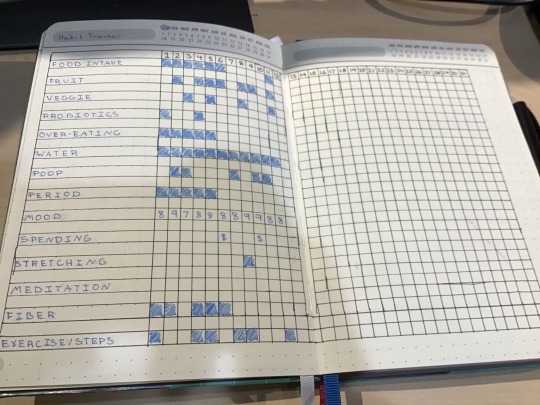 Habit Tracker
1 2 3 4 5 6 7 8 9 10 11 12 13 14 15 16 17 18 19 20 21 22 23 24 25 26 27 28 29 30 31
FOOD INTAKE
FRUIT
VEGGIE
PROBIOTICS
OVER-EATING
WATER
POOP
PERIOD
MOOD 8 9 7 8 8 8 8 9 9 8 8
SPENDING $ $
STRETCHING
MEDITATION
FIBER
EXERCISE/STEPS